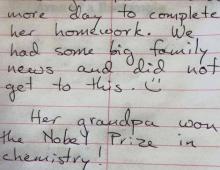 more day to complete
her homework. We
had some big family
news and did not
get to this. ☺
Her grandpa won
the Nobel Prize in
chemistry!